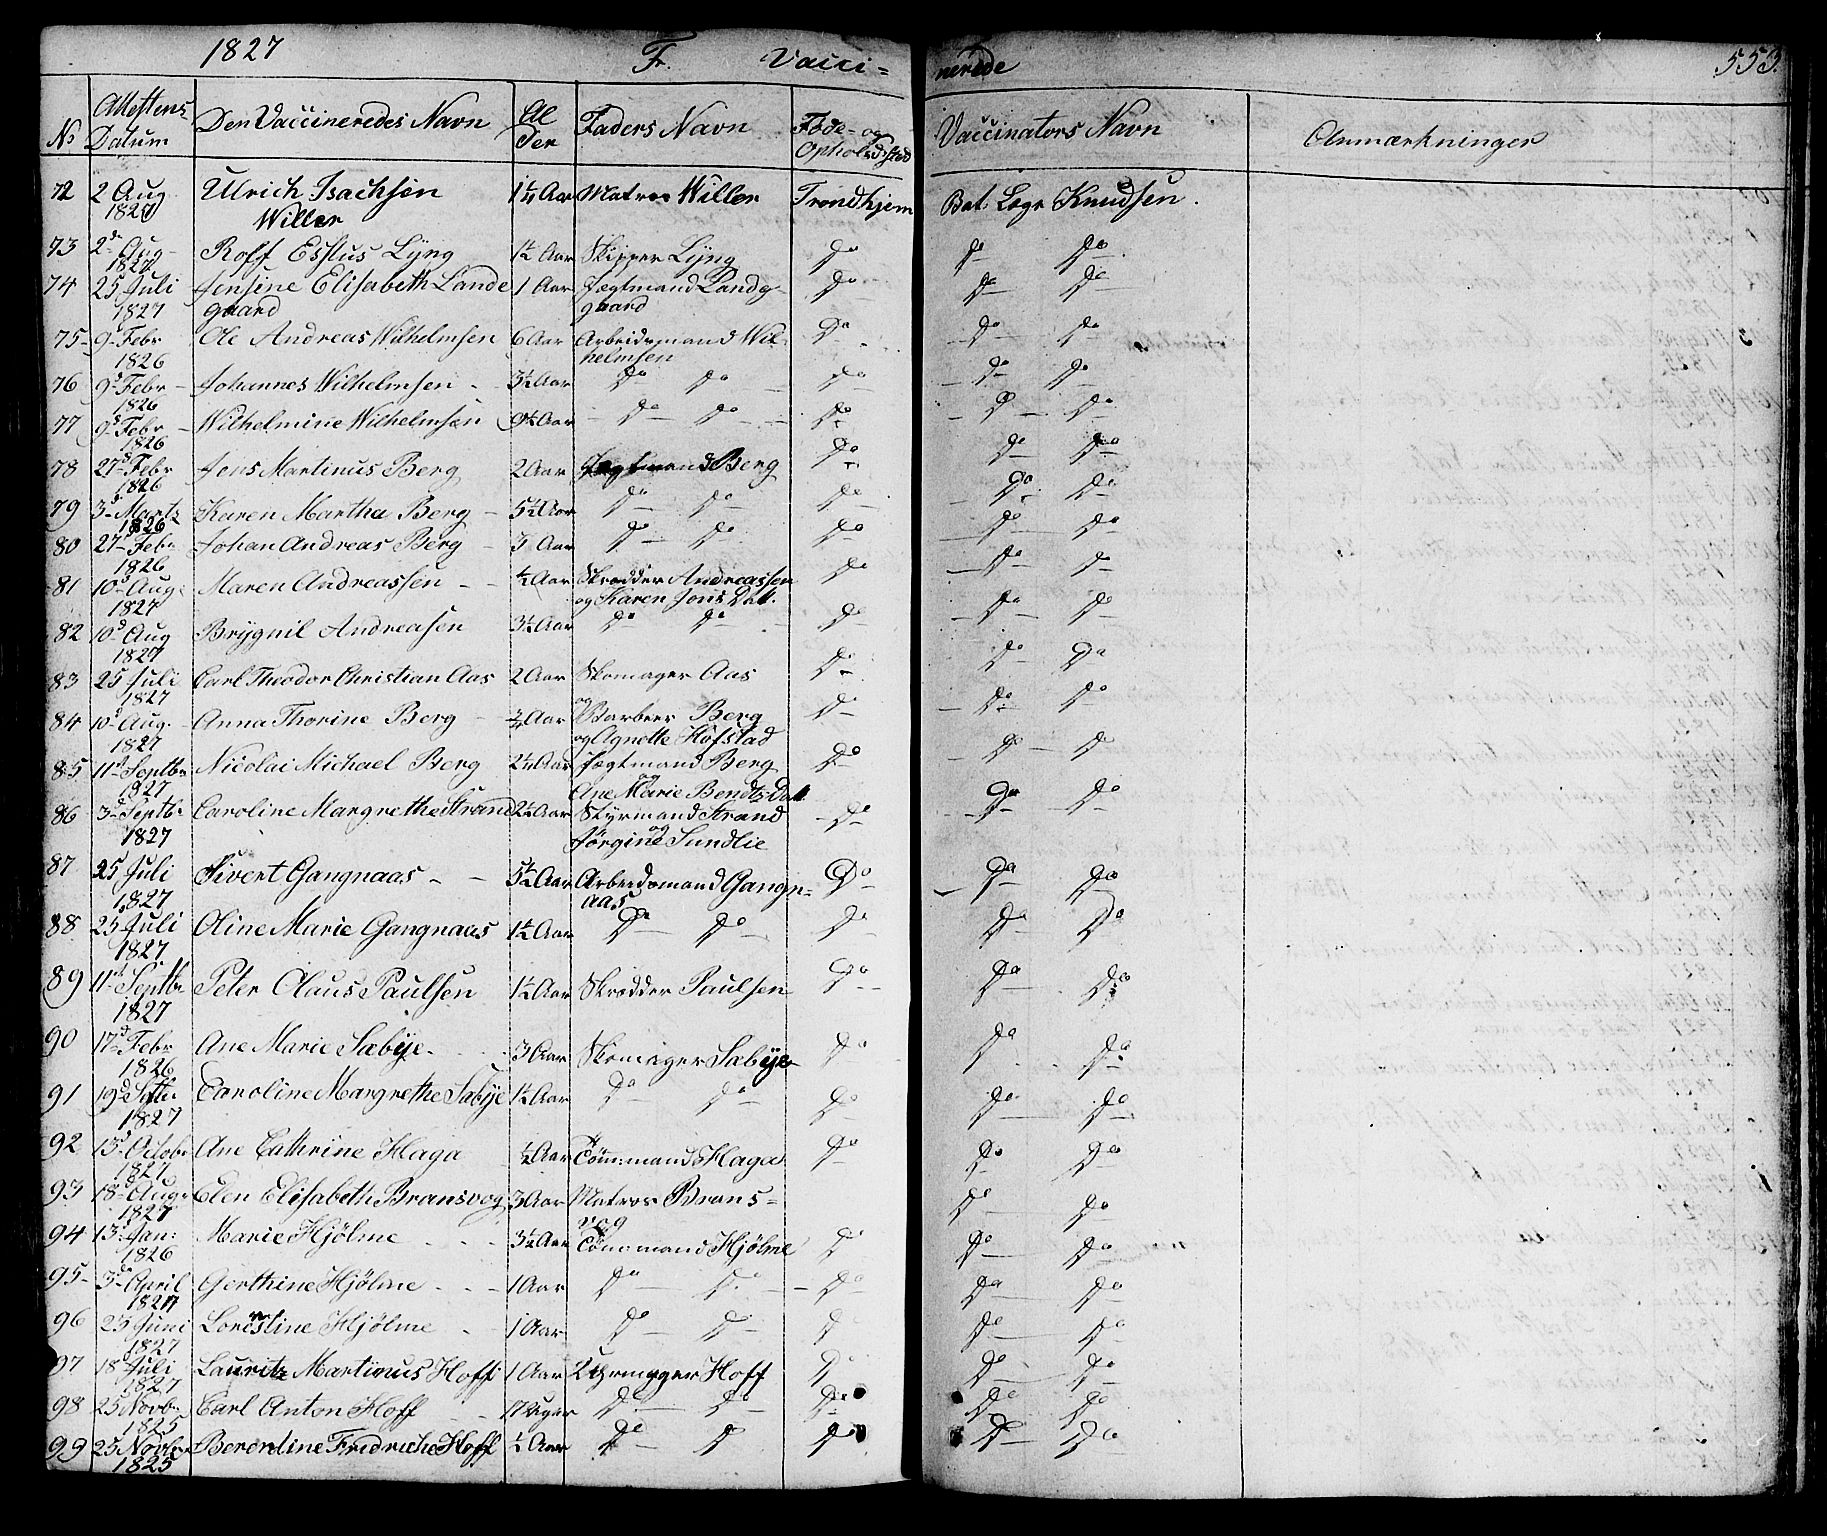 1827 Fr. Vacci=
nerede 553.
No Attestens Datum Den Vaccineredes Navn Al ter Faders Navn Føde- og Opholdsted Vaccinators Navn Anmærkninger
72 2 Aug 1827 Ulrich Isachsen 1¼ Aar Matros Willer Trondhjem Bat. Læge Knudsen.
Willer
73 2d Aug 1827 Roff Esflus Lÿng 1½ Aar Skipper Lÿng Do Do Do
74 25 Juli 1827 Jensine Elisabeth Lande 1 Aar Jægtmand Landg- Do Do Do
gaard gaard
75 9d Febr 1826 Ole Andreas Wilhelmsen 6 Aar Arbeidsmand Wil- Do Do Do
helmsen
76 9d Febr 1826 Johannes Wilhelmsen 3½ Aar Do Do Do Do Do
77 9d Febr 1826 Wilhelmine Wilhelmsen 9½ Aar Do Do Do Do Do
78 27d Febr 1826 Jens Martinus Berg 2 Aar Jægtmand Berg Do Do Do
79 3d Marts 1826 Karen Martha Berg 5½ Aar Do Do Do Do Do
80 27 Feb. 1826 Johan Andreas Berg 3 Aar Do Do Do Do Do
81 10d Aug. 1827 Maren Andreassen ½ Aar Skrædder Andreassen Do Do Do
og Karen Jons Dat.
82 10d Aug 1827 Brÿgnil Andreasen 3½ Aar Do Do Do Do Do
83 25 Juli 1827 Carl Theodor Christian Aas 2 Aar Skomager Aas Do Do Do
84 10d Aug. 1827 Anna Thorine Berg ¾ Aar Barbeer Berg Do Do Do
og Agnette Hofstad
85 11d Septbr 1827 Nicolai Michael Berg 2¼ Aar Jægtmand Berg Do Do Do
og Ane Marie Bendts Dat
86 3d Septbr 1827 Caroline Margrethe Strand 2½ Aar Styrmand Strand Do Do Do
og Jørgine Sundlie
87 25 Juli 1827 Sivert Gangnaas 5½ Aar Arbeidsmand Gangn= Do Do Do
aas
88 25 Juli 1827 Oline Marie Gangnaas 1½ Aar Do Do Do Do Do
89 11d Septbr 1827 Peter Claus Paulsen 1½ Aar Skrædder Paulsen Do Do Do
90 17d Febr 1826 Ane Marie Sæbÿe 3 Aar Skomager Sæbÿe Do Do Do
91 19d Septbr 1827 Caroline Margrethe Sæbÿe 1½ Aar Do Do Do Do Do
92 13d Octobr 1827 Ane Cathrine Haga ½ Aar Tømmermand Haga Do Do Do
93 18d Aug. 1827 Elen Elisabeth Bransvog 3 Aar Matros Brans= Do Do
vog
94 13d Jan: 1826 Marie Hjølme 3½ Aar Tømmermand Hjølme Do Do Do
95 3d April 1827 Gerthine Hjølme 1 Aar Do Do Do Do Do
96 25 Juni 1827 Lorentine Hjølme 1 Aar Do Do Do Do Do
97 18 Juli 1827 Lauritz Martinus Hoff 1 Aar Uhrmager Hoff Do Do Do
98 25 Novbr 1825 Carl Anton Hoff 17 Uger Do Do Do Do Do
99 25 Novbr 1825 Berontine Fredriche Hoff ½ Aar Do Do Do Do Do